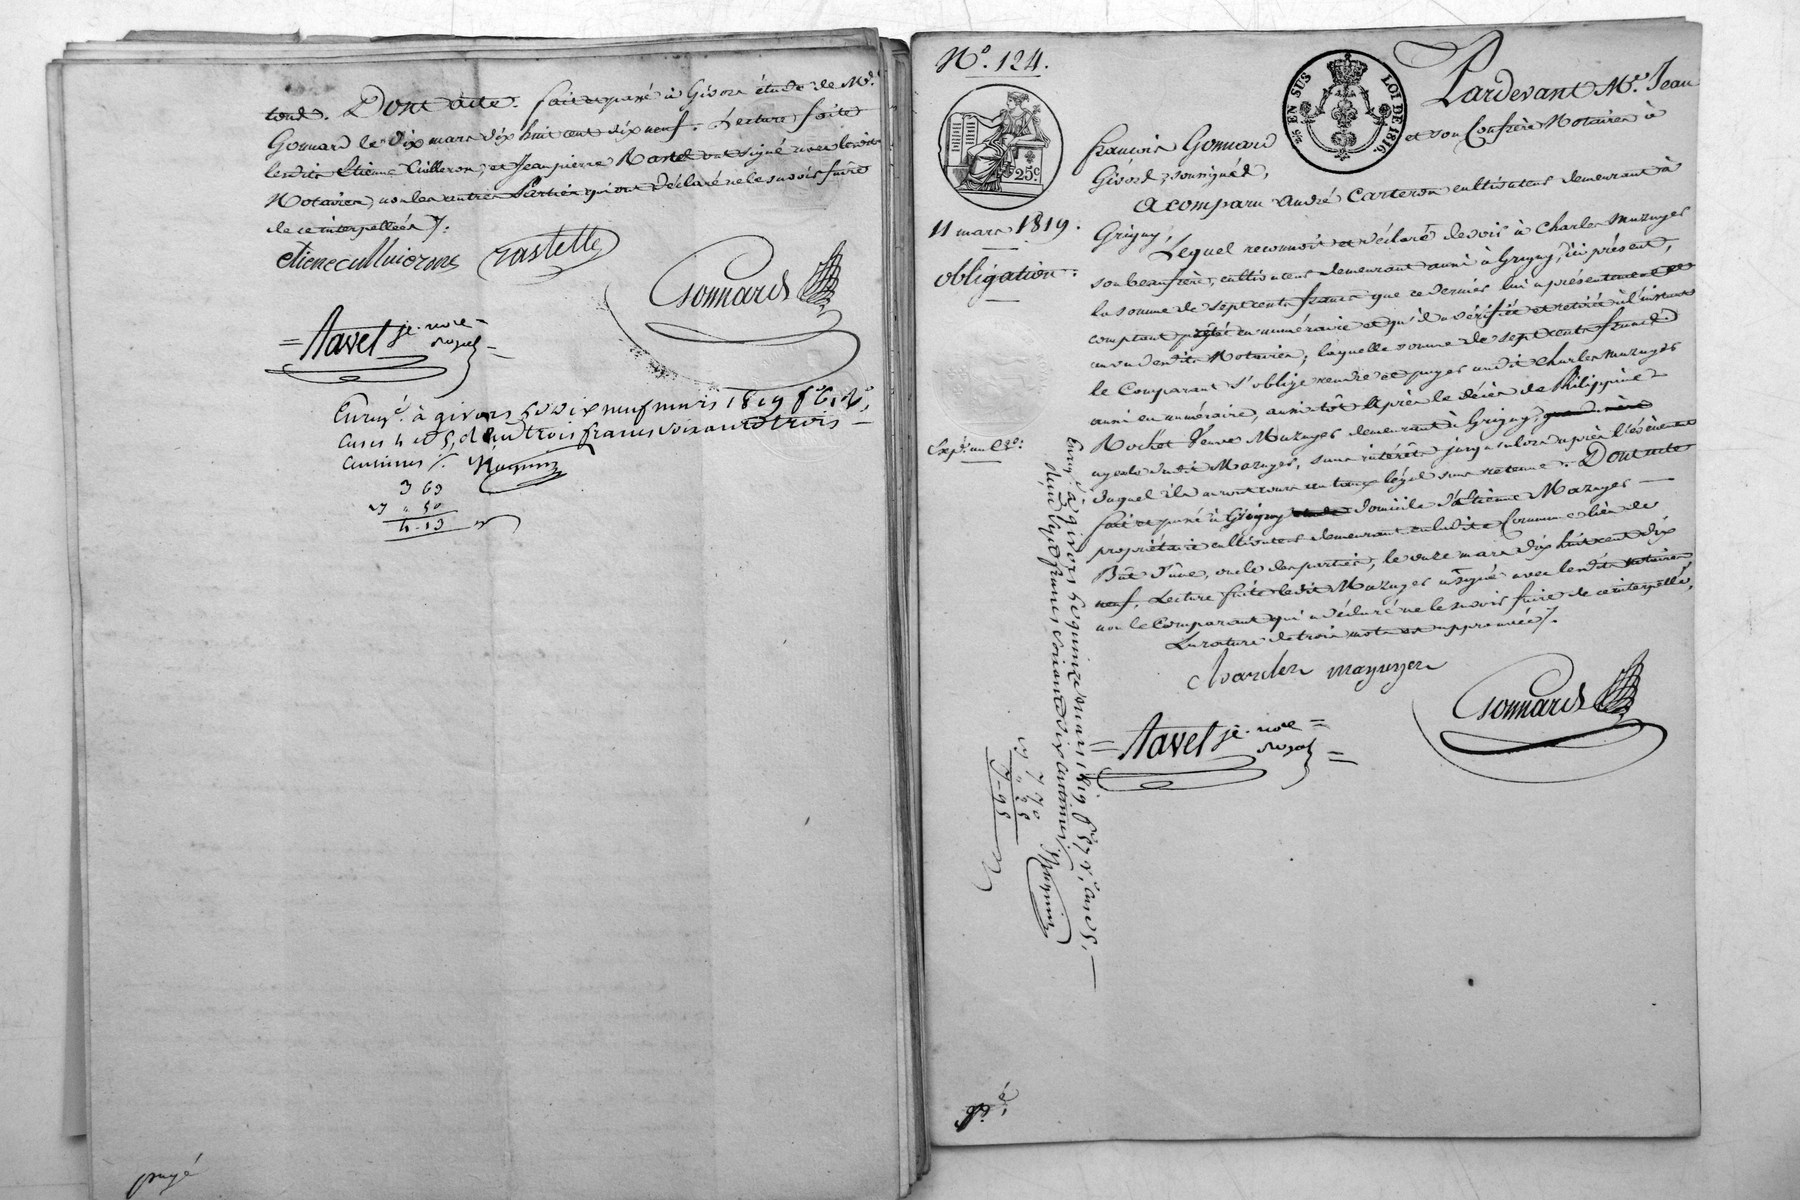 tend. Dont acte. fait et passé à Givors étude de Me.
Gonnard le dix mars dix huit cent dix neuf. Lecture faite
lesdits Etienne Cuilleron, et Jean pierre Rastel ont signé avec lesdits
Notaires, non les autres Parties qui ont déclaré ne le savoir faire
de ce interpellées /.
etiene culluierons rastelle
Gonnard
= Navel je. nore =
royal =
Enregé. à givors le dix neuf mars 1819 fo. 61 Ro.
cases 4 et 5, reçu trois francs soixante trois
centimes /.
3 63
" 50
4 - 13
payé
No. 124.
EN SUS LOI DE 1816.
25c.
11 mars 1819.
obligation.
Pardevant Me. Jean
françois Gonnard et son Confrère Notaires à
Givors, soussignés,
a comparu André Carteron cultivateur demeurant à
Grigny,
Lequel reconnoit et déclare devoir à Charles Mazuyer
son beau frère, cultivateur demeurant aussi à Grigny, ici présent,
la somme de sept cents francs que ce dernier lui a présentement
comptant prêté en numéraire et qu'il a vérifiée et retirée à l'instant
au vu desdits Notaires; laquelle somme de sept cents francs
le Comparant s'oblige rendre et payer audit Charles Mazuyer
aussi en numéraire, aussitôt après le décès de Philippine
Rochet Veuve Mazuyer demeurant à Grigny,
ayeule dudit Mazuyer, sans intérêts jusqu'alors après l'événement
duquel ils auront cours au taux légal sans retenue. Dont acte
fait et passé à Grigny domicile d'Etienne Mazuyer
propriétaire cultivateur demeurant en ladite Commune lieu de
Bât d'âne, oncle des parties, le onze mars dix huit cent dix
neuf. Lecture faite ledit Mazuyer a signé avec lesdits Notaires
non le Comparant qui a déclaré ne le savoir faire de ce interpellé,
La rature de trois mots est approuvée /.
charles mazuyer
Gonnard
= Navel je. nore =
royal =
Expé. un Cre.
Enregé. à givors le quinze mars 1819 fo. 57 Vo. cases 5,
reçu sept francs soixante dix centimes /.
7 70
" 25
7 - 95
pé.